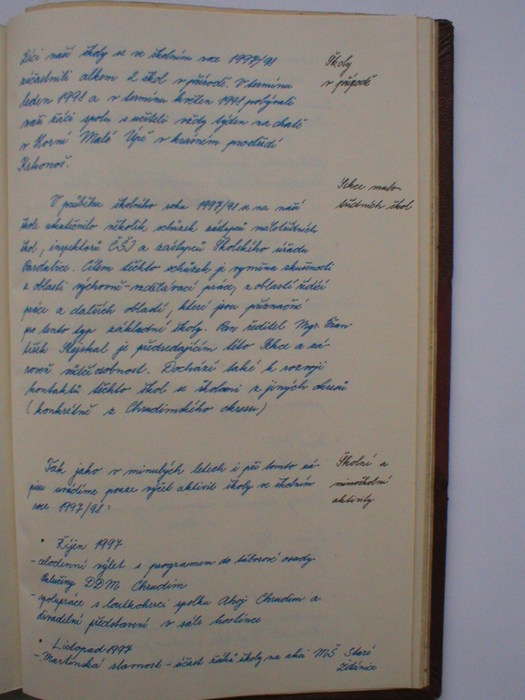 Žáci naší školy se ve školním roce 1997/98
zúčastnili celkem 2 škol v přírodě. V termínu
leden 1998 a v termínu květen 1998 pobývali
naši žáci spolu s učiteli vždy týden na chatě
v Horní Malé Úpě v krásném prostředí
Krkonoš.
Školy
v přírodě
V průběhu školního roku 1997/98 se na naší
škole uskutečnilo několik schůzek zástupců malotřídních
škol, inspektorů ČŠI a zástupců Školského úřadu
Pardubice. Cílem těchto schůzek je výměna zkušeností
z oblasti výchovně-vzdělávací práce, z oblasti řídící
práce a dalších oblastí, které jsou příznačné
pro tento typ základní školy. Pan ředitel Mgr. Fran
tišek Nejskal je předsedajícím této Sekce a zá-
roveň vůdčí osobností. Dochází také k rozvoji
kontaktů těchto škol se školami z jiných okresů
(konkrétně z Chrudimského okresu)
Sekce malo-
třídních škol
Tak jako v minulých letech i při tomto zá-
pisu uvádíme pouze výčet aktivit školy ve školním
roce 1997/98:
Školní a
mimoškolní
aktivity
• Říjen 1997
- celodenní výlet s programem do táborové osady
DDM Chrudim
- spolupráce s loutkoherci spolku Ahoj Chrudim a
divadelní představení v sále hostince
• Listopad 1997
- Martinská slavnost - účast žáků školy na akci MŠ Staré
Ždánice